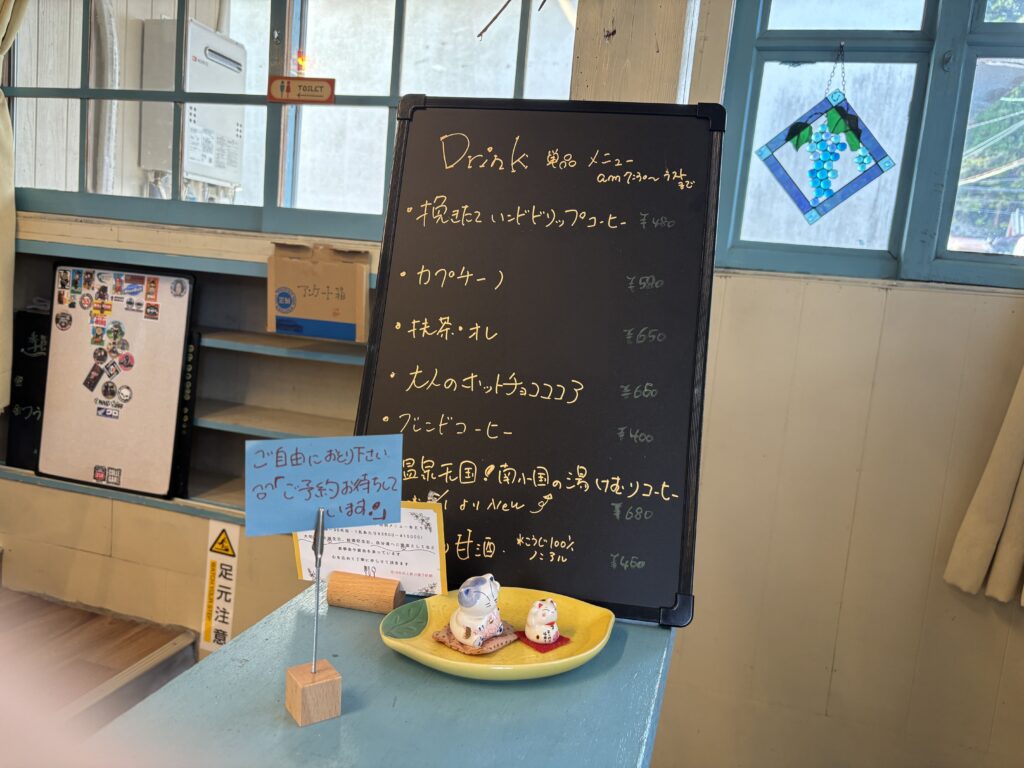 TOILET
Drink 単品 メニュー
am7:30~ラストまで
・挽きたて ハンドドリップコーヒー ¥480
・カプチーノ
・抹茶・オレ ¥650
・大人のホットチョコココア ¥650
・ブレンドコーヒー ¥400
温泉天国!南小国の湯けむりコーヒー
より New ¥680
甘酒. 米こうじ100% ノンアル ¥450
アンケート箱
ご自由におとり下さい
「ご予約お待ちして
います!」
足元注意